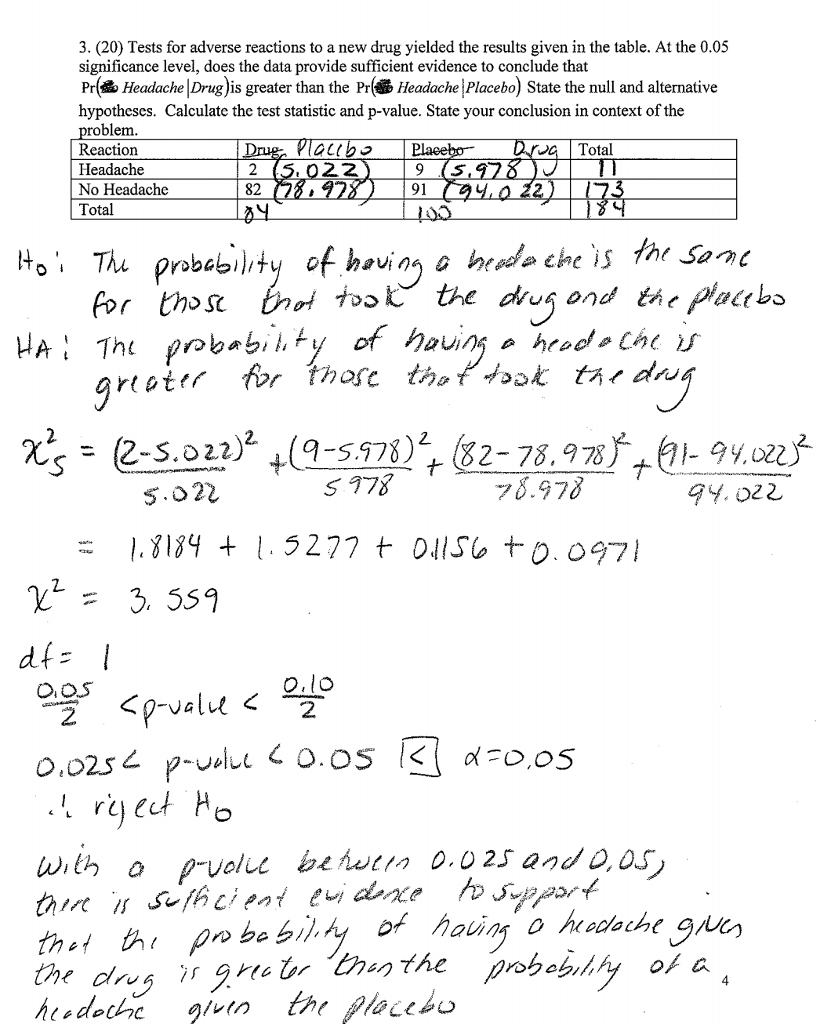 3. (20) Tests for adverse reactions to a new drug yielded the results given in the table. At the 0.05
significance level, does the data provide sufficient evidence to conclude that
Pr( Headache|Drug)is greater than the Pr( Headache|Placebo) State the null and alternative
hypotheses. Calculate the test statistic and p-value. State your conclusion in context of the
problem.
Reaction Drug Placibo Placebo Drug Total
Headache 2 (5.022) 9 (5.978) 11
No Headache 82 (78.978) 91 (94.022) 173
Total 84 100 184
Ho: The probability of having a headache is the same
for those that took the drug and the placebo
HA: The probability of having a headache is
greater for those that took the drug
χ²s = (2-5.022)²/5.022 + (9-5.978)²/5978 + (82-78.978)²/78.978 + (91-94.022)²/94.022
= 1.8184 + 1.5277 + 0.1156 + 0.0971
χ² = 3.559
df = 1
0.05/2 < p-value < 0.10/2
0.025 < p-value < 0.05 < α=0.05
∴ reject Ho
With a p-value between 0.025 and 0.05,
there is sufficient evidence to support
that the probability of having a headache given
the drug is greater than the probability of a
4
headache given the placebo